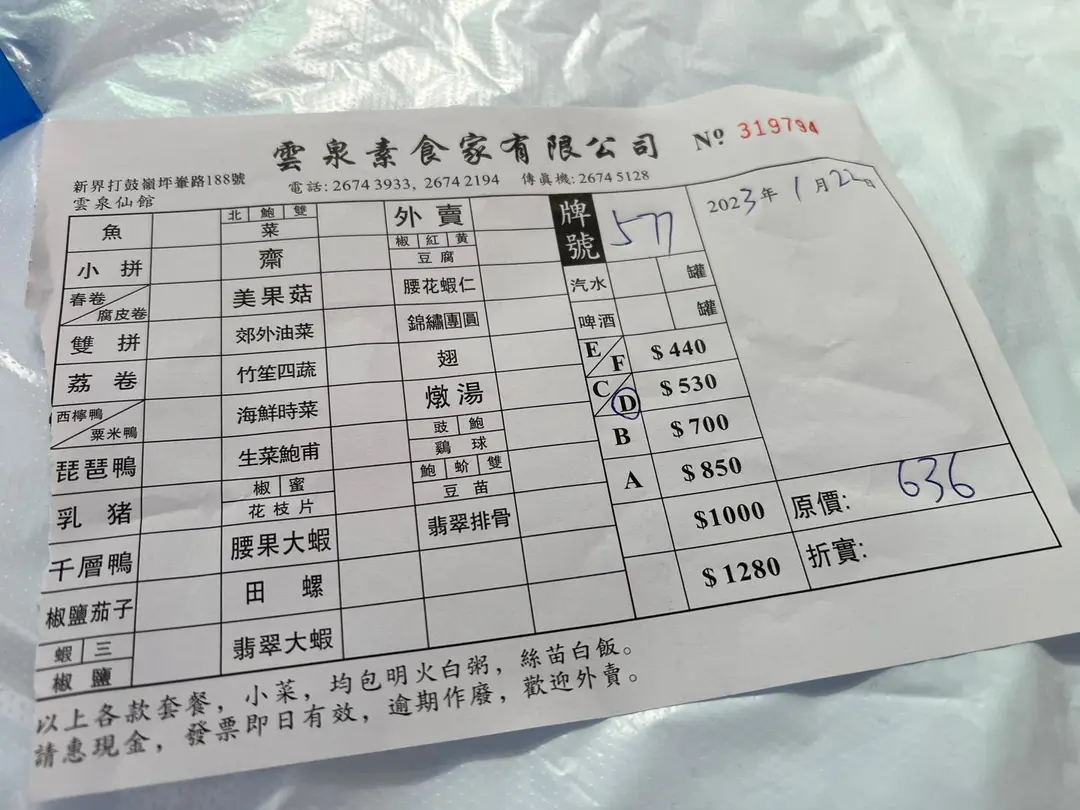 雲泉素食家有限公司 Nº 319794
新界打鼓嶺坪輋路188號 電話: 2674 3933, 2674 2194 傳眞機: 2674 5128
雲泉仙館
魚
小拼
春卷/腐皮卷
雙拼
荔卷
西檸鴨/粟米鴨
琵琶鴨
乳猪
千層鴨
椒鹽茄子
蝦 三
椒鹽
北 鮑 雙
菜
齋
美果菇
郊外油菜
竹笙四蔬
海鮮時菜
生菜鮑甫
椒 蜜
花枝片
腰果大蝦
田螺
翡翠大蝦
外賣
椒 紅 黄
豆腐
腰花蝦仁
錦繡團圓
翅
燉湯
豉 鮑
鷄球
鮑 蚧 雙
豆苗
翡翠排骨
牌號 577
汽水 罐
啤酒 罐
E/F $440
C/D $530
B $700
A $850
$1000
$1280
2023年1月22日
原價: 636
折實:
以上各款套餐，小菜，均包明火白粥，絲苗白飯。
請惠現金，發票即日有效，逾期作廢，歡迎外賣。